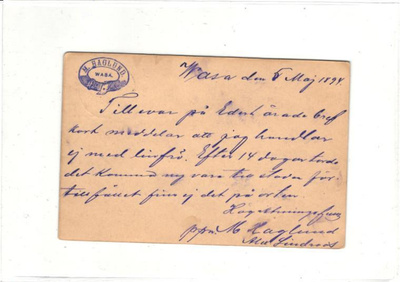 M. HAGLUND
WASA.
Wasa den 8 Maj 1894
Till svar på Edert ärade bref
kort meddelar att jag handlar
ej med linfrö. Efter 14 dagar torde
det komma ny vara tro eleven för
tillfället fins ej det på orten
Högaktningsfullt
ppa M Haglund